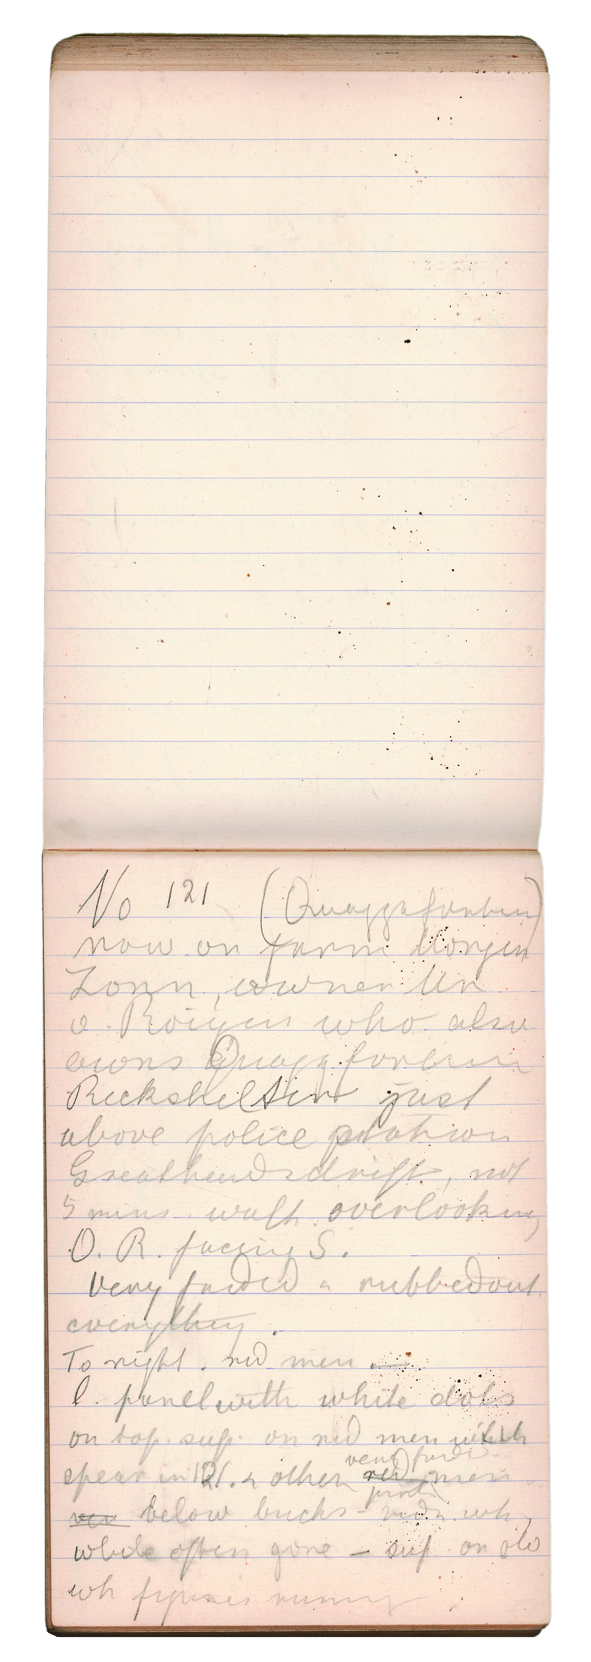 No 121 (Quaggafontein)
now on farm Morgen
Zonn, owner Mr
v. Rooyen who also
owns Quaggafontein
Rockshelter just
above police station
Greatheadsdrift, not
5 mins walk overlooking
O. R. facing S.
Very faded & rubbed out
everything.
To right . red men
l. panel with white dots
on top. sup. on red men with
spear in 121. & other red men
very faded
below bucks - red & wh
white often gone - sup on old
wh figures running